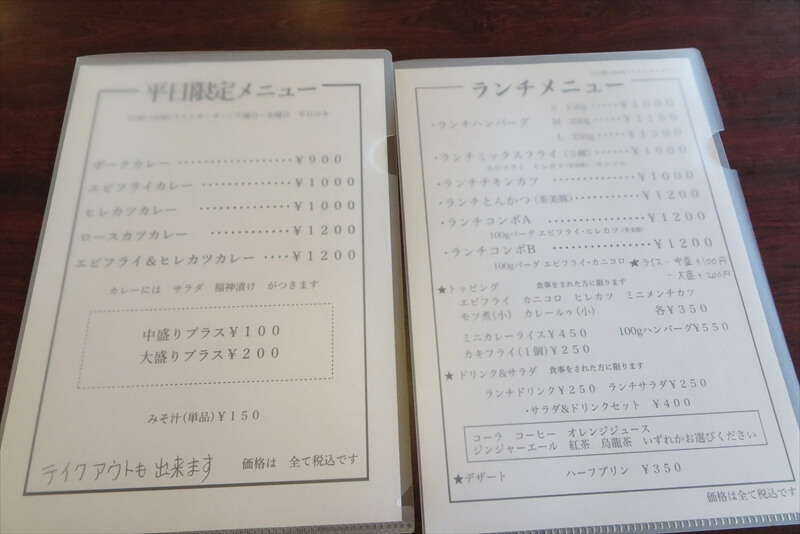 平日限定メニュー
ポークカレー ・・・・・・・・・・・・・・・・ ¥900
エビフライカレー ・・・・・・・・・・・・ ¥1000
ヒレカツカレー ・・・・・・・・・・・・ ¥1000
ロースカツカレー ・・・・・・・・・・・・ ¥1200
エビフライ＆ヒレカツカレー ・・・・・ ¥1200
カレーには サラダ 福神漬け がつきます
中盛りプラス¥100
大盛りプラス¥200
みそ汁(単品)¥150
テイクアウトも出来ます 価格は 全て税込です
ランチメニュー
S 150g ・・・・・ ¥1000
・ランチハンバーグ M 200g ・・・・・ ¥1150
L 250g ・・・・・ ¥1300
・ランチミックスフライ(3種) ・・・・・・ ¥1000
・ランチチキンカツ ・・・・・・・・・・ ¥1000
・ランチとんかつ(茶美豚) ・・・・・・・・・ ¥1200
・ランチコンボA ・・・・・・・・・・・ ¥1200
100gバーグ エビフライ・ヒレカツ
・ランチコンボB ・・・・・・・・・・・ ¥1200
100gバーグ エビフライ・カニコロ ★ライス - 中盛 +100円
- 大盛 +200円
★トッピング 食事をされた方に限ります
エビフライ カニコロ ヒレカツ ミニメンチカツ
モツ煮(小) カレールゥ(小) 各¥350
ミニカレーライス¥450 100gハンバーグ¥550
カキフライ(1個)¥250
★ドリンク&サラダ 食事をされた方に限ります
ランチドリンク¥250 ランチサラダ¥250
・サラダ&ドリンクセット ¥400
コーラ コーヒー オレンジジュース
ジンジャーエール 紅茶 烏龍茶 いずれかお選びください
★デザート ハーフプリン ¥350
価格は全て税込です